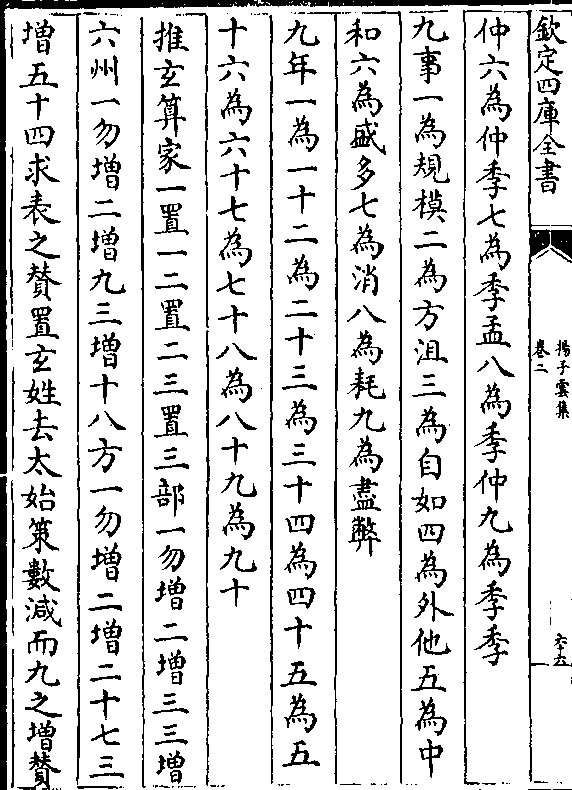 欽定四庫全書
揚子雲集
卷二
六十五
仲六為仲季七為季孟八為季仲九為季季
九事一為規模二為方沮三為自如四為外他五為中
和六為盛多七為消八為耗九為盡弊
九年一為一十二為二十三為三十四為四十五為五
十六為六十七為七十八為八十九為九十
推玄算家一置一二置二三置三部一勿增二增三三增
六州一勿增二增九三增十八方一勿增二增二十七三
增五十四求表之贊置玄姓去太始策數減而九之增贊